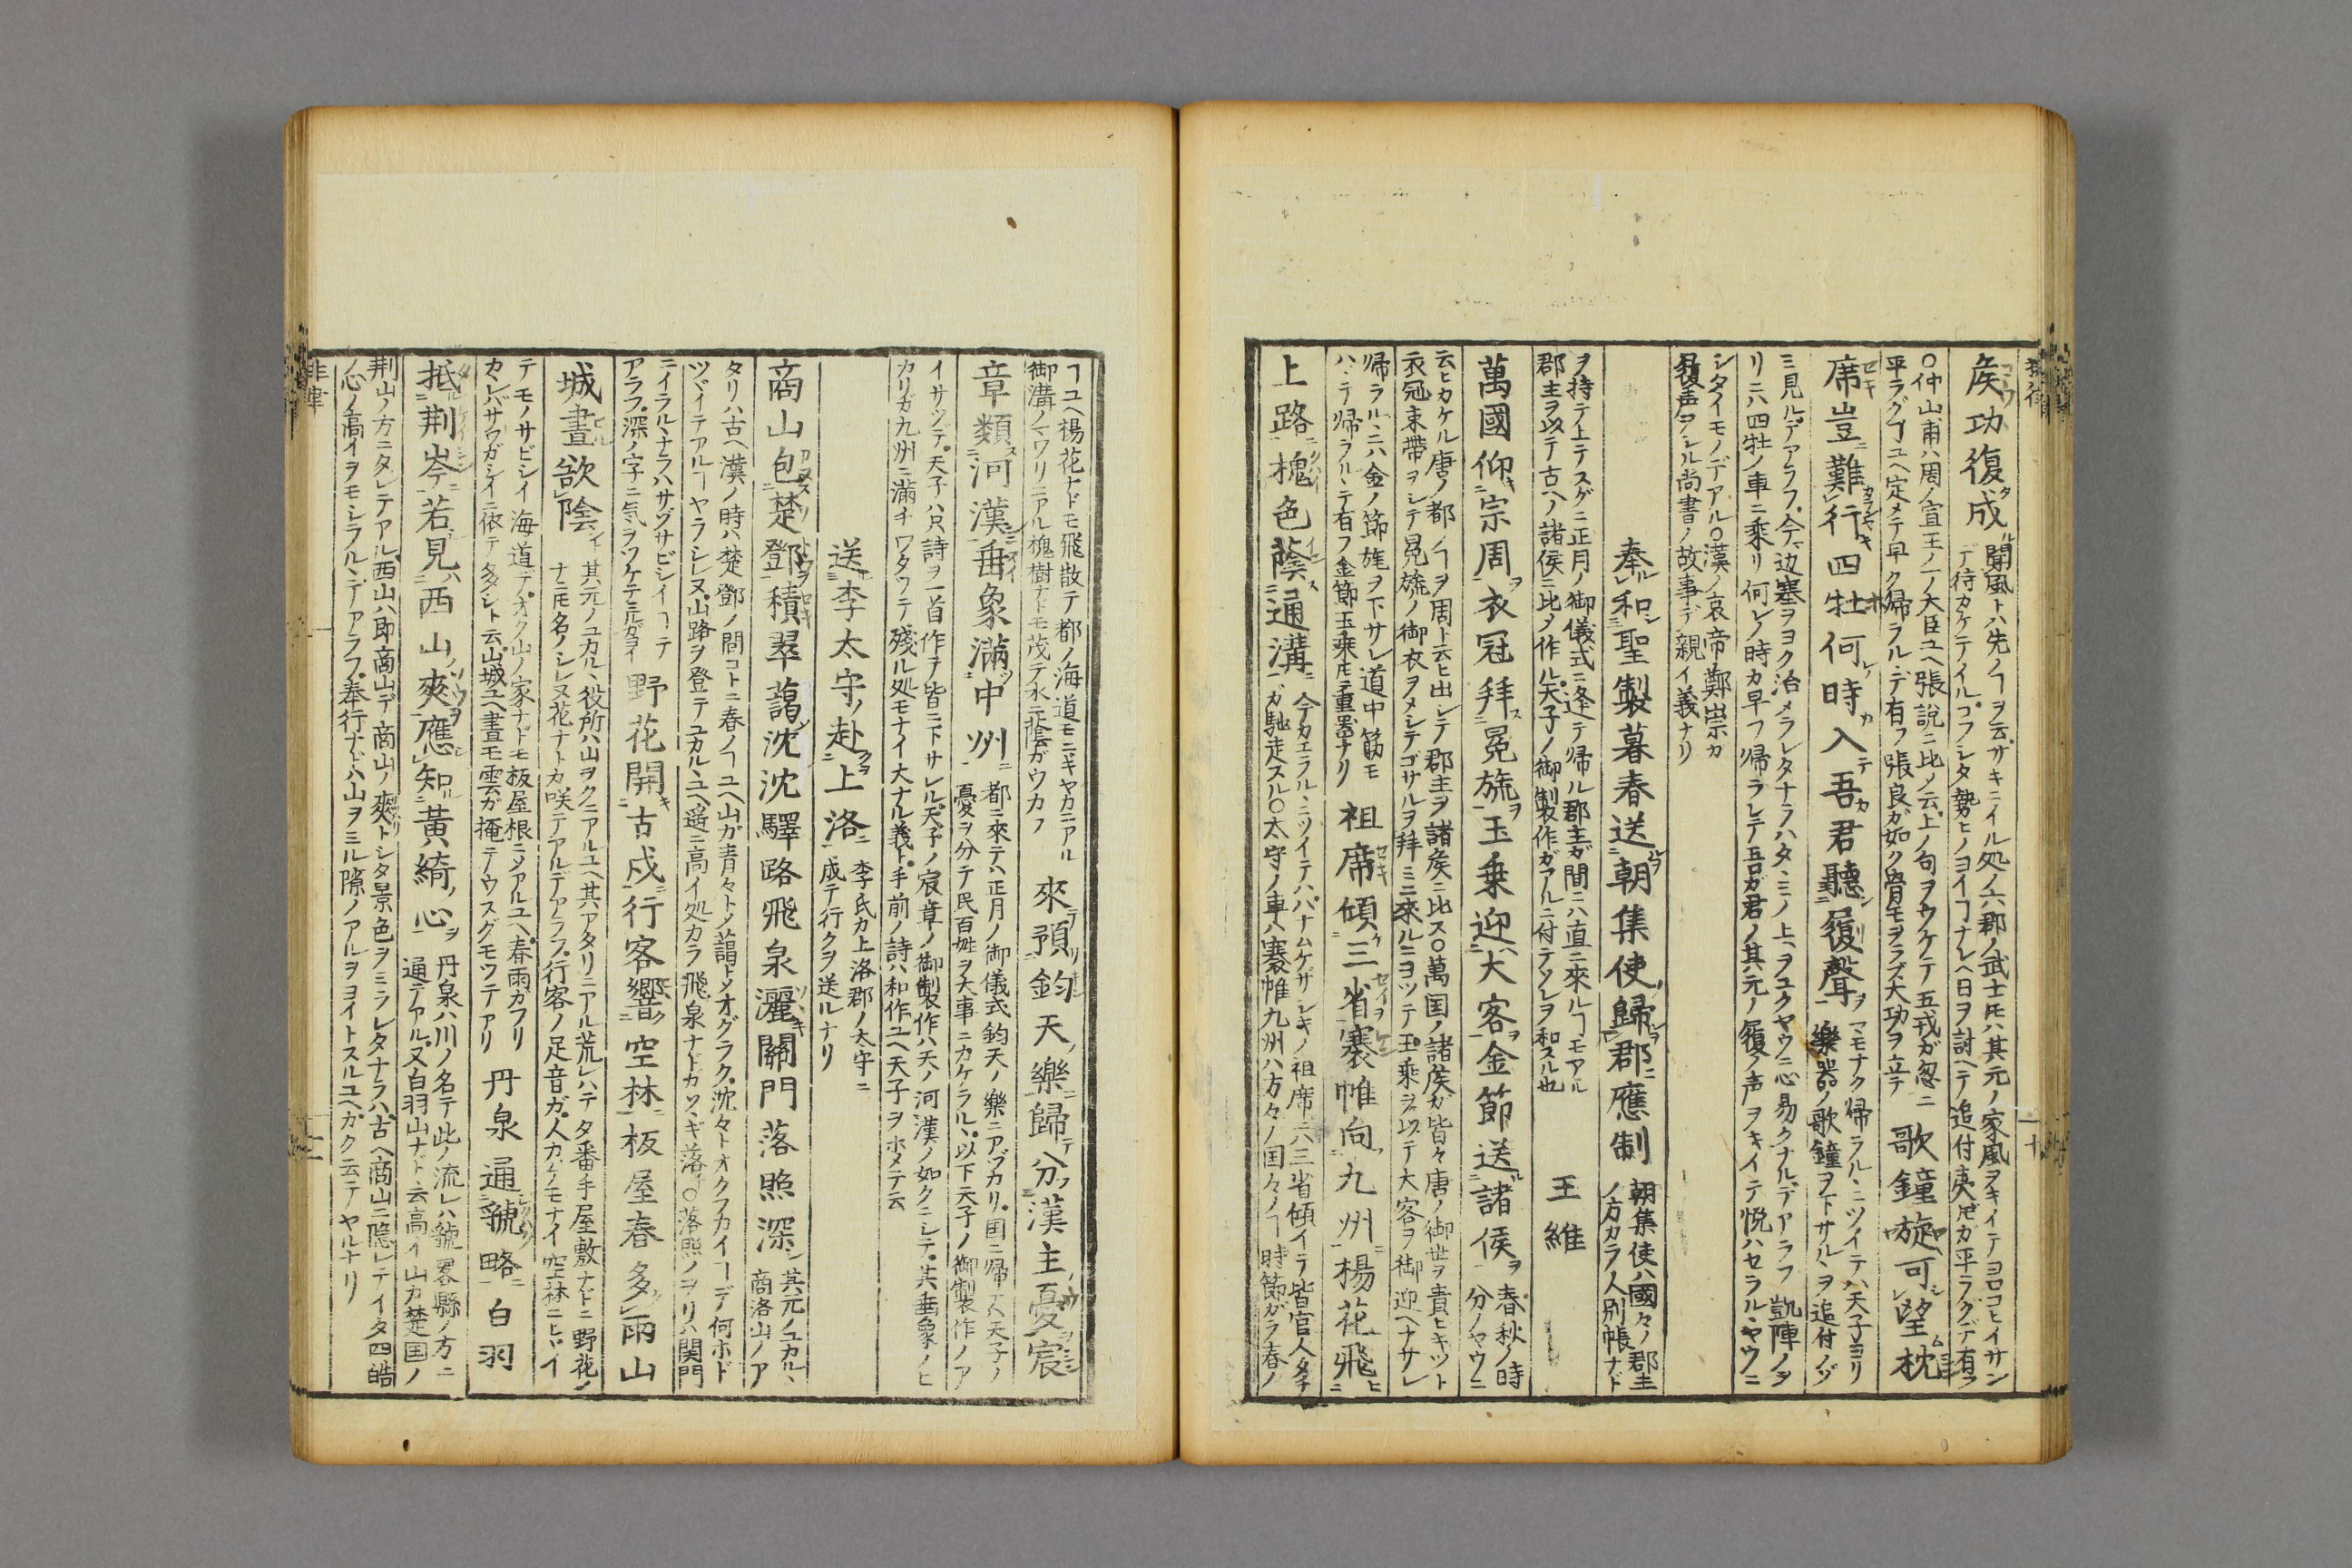 侯功復成
開風トハ先ノヿヲ云サキニイル処ノ六郡ノ武士𪜈ハ其元ノ家風ヲキイテヨロコヒイサン
デ待カケテイルコフシタ勢ヒノヨイヿナレヘ日ヲ討ヘテ追付夷𪜈カ平ラグデ有フ
〇仲山甫ハ周ノ宣王ノ一ノ大臣ユヘ張説ニ比〆云上ノ句ヲウケテ五戎ガ忽ニ
平ラグヿユヘ定メテ早ク帰ラルヽデ有フ張良ガ如ク骨モヲラズ大功ヲ立テ
歌鐘旋可望枕
席豈難行四牡何時入吾君聽履聲
マモナク帰ラルヽニツイテハ天子ヨリ
樂器ノ歌鐘ヲ下サルヽヲ追付ノゾ
ミ見ルデアラフ今マデ辺塞ヲヨク治メラレタナラハタヽミノ上ヲユクヤウニ心易クナルデアラフ凱陣ノヲ
リニハ四牡ノ車ニ乘リ何レノ時カ早フ帰ラレテ吾ガ君ノ其元ノ履ノ声ヲキイテ悦ハセラルヽヤウニ
シタイモノデアル〇漢ノ哀帝鄭崇カ
履声ヲシル尚書ノ故事デ親イ義ナリ
奉和聖製暮春送朝集使歸郡應制
朝集使ハ國々ノ郡主
ノ方カラノ人別帳ナド
ヲ持テ上テスグニ正月ノ御儀式ニ逢テ帰ル郡主ガ間ニハ直ニ來ルヿモアル
郡主ヲ以テ古ヘノ諸侯ニ比〆作ル天子ノ御製作ガアルニ付テソレヲ和スル也
王維
萬國仰宗周衣冠拜冕旒玉乗迎大客金節送諸侯
春秋ノ時
分ノヤウニ
云ヒカケル唐ノ都ノヿヲ周ト云ヒ出シテ郡主ヲ諸侯ニ比ス〇萬国ノ諸侯カ皆々唐ノ御世ヲ貴ヒキット
衣冠束帶ヲシテ冕旒ノ御衣ヲメシテゴサルヲ拜ミニ來ルニヨツテ玉乘ヲ以テ大客ヲ御迎ヘナサレ
帰ラルヽニハ金ノ節旄ヲ下サレ道中筋モ
ハヽテ帰ラルヽテ有フ金節玉乗𪜈ニ重器ナリ
祖席傾三省褰帷向九州楊花飛
上路槐色蔭通溝
今カエラルヽニツイテハハナムケザシキノ祖席ニハ三省傾イテ皆官人タチ
ガ馳走スル〇太守ノ車ハ褰帷九州ハ方々ノ国々ノヿ時節ガラ春ノ
ヿユヘ楊花ナドモ飛散テ都ノ海道モニギヤカニアル
御溝ノマワリニアル槐樹ナドモ茂テ水ニ蔭ガウカフ
來預鈞天樂歸分漢主憂宸
章類河漢垂象滿中州
都ニ來テハ正月ノ御儀式鈞天ノ樂ニアヅカリ国ニ帰テハ天子ノ
憂ヲ分テ民百姓ヲ大事ニカケラルヽ以下天子ノ御製作ノア
イサツデ天子ハ只詩ヲ一首作ヲ皆ニ下サレル天子ノ宸章ノ御製作ハ天ノ河漢ノ如クニシテ其垂象ノヒ
カリガ九州ニ滿チワタツテ殘ル処モナイ大ナル義ト手前ノ詩ハ和作ユヘ天子ヲホメテ云
送李太守赴上洛
李氏カ上洛郡ノ太守ニ
成テ行クヲ送ルナリ
商山包楚鄧積翠藹沈沈驛路飛泉灑關門落照深
其元ノユカルヽ
商洛山ノア
タリハ古ヘ漢ノ時ハ楚鄧ノ間コトニ春ノヿユヘ山ガ青々トノ藹ト〆オグラク沈々トオクフカイヿデ何ホド
ツヾイテアルヿヤラシレヌ山路ヲ登テユカルヽユヘ遥ニ高イ処カラ飛泉ナドカソヽギ落〇落照ノヲリハ関門
ニイラルヽナラハサゾサビシイヿテ
アラフ深ノ字ニ気ヲツケテミルガヨイ
野花開古戍行客響空林板屋春多雨山
城晝欲陰
其元ノユカルヽ役所ハ山ヲクニアルユヘ其アタリニアル荒レハテタ番手屋敷ナドニ野花ノ
ナニ𪜈名ノシレヌ花ナトカ咲テアルデアラフ行客ノ足音ガ人カゲモナイ空林ニヒヾイ
テモノサビシイ海道デオク山ノ家ナドモ板屋根ニ〆アルユヘ春雨カフリ
カヽレバサワガシイニ依テ多シト云山城ユヘ晝モ雲ガ掩テウスグモツテアリ
丹泉通虢略白羽
抵荆岑若見西山爽應知黃綺心
丹泉ハ川ノ名テ此ノ流レハ虢畧縣ノ方ニ
通テアル又白羽山ナト云高イ山カ楚国ノ
荆山ノ方ニタレテアル西山ハ即商山デ商山ノ爽トシタ景色ヲミラレタナラハ古ヘ商山ニ隠レテイタ四皓
ノ心ノ高イヲモシラルヽデアラフ奉行ナドハ山ヲミル隙ノアルヲヨイトスルユヘガク云テヤルナリ